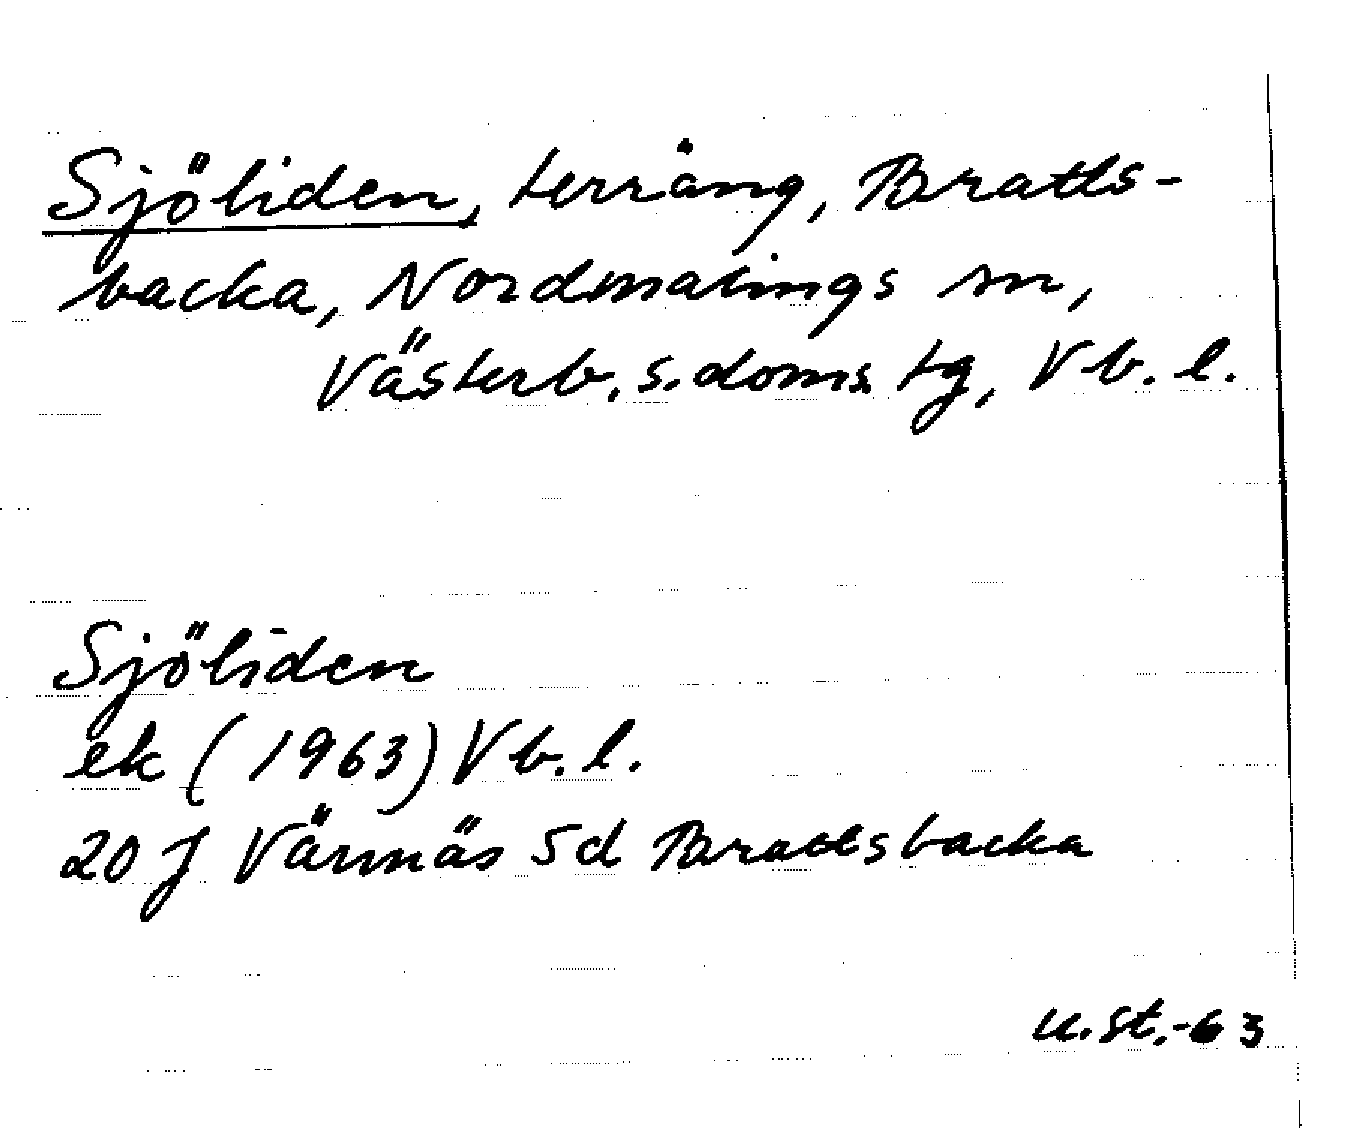 Sjöliden, terräng, Bratts-
backa, Nordmalings sn,
Västerb. s. doms. tg, Vb. l.
Sjöliden
ek (1963) Vb. l.
20 J Värnäs Sd Brattsbacka
u.st.-63